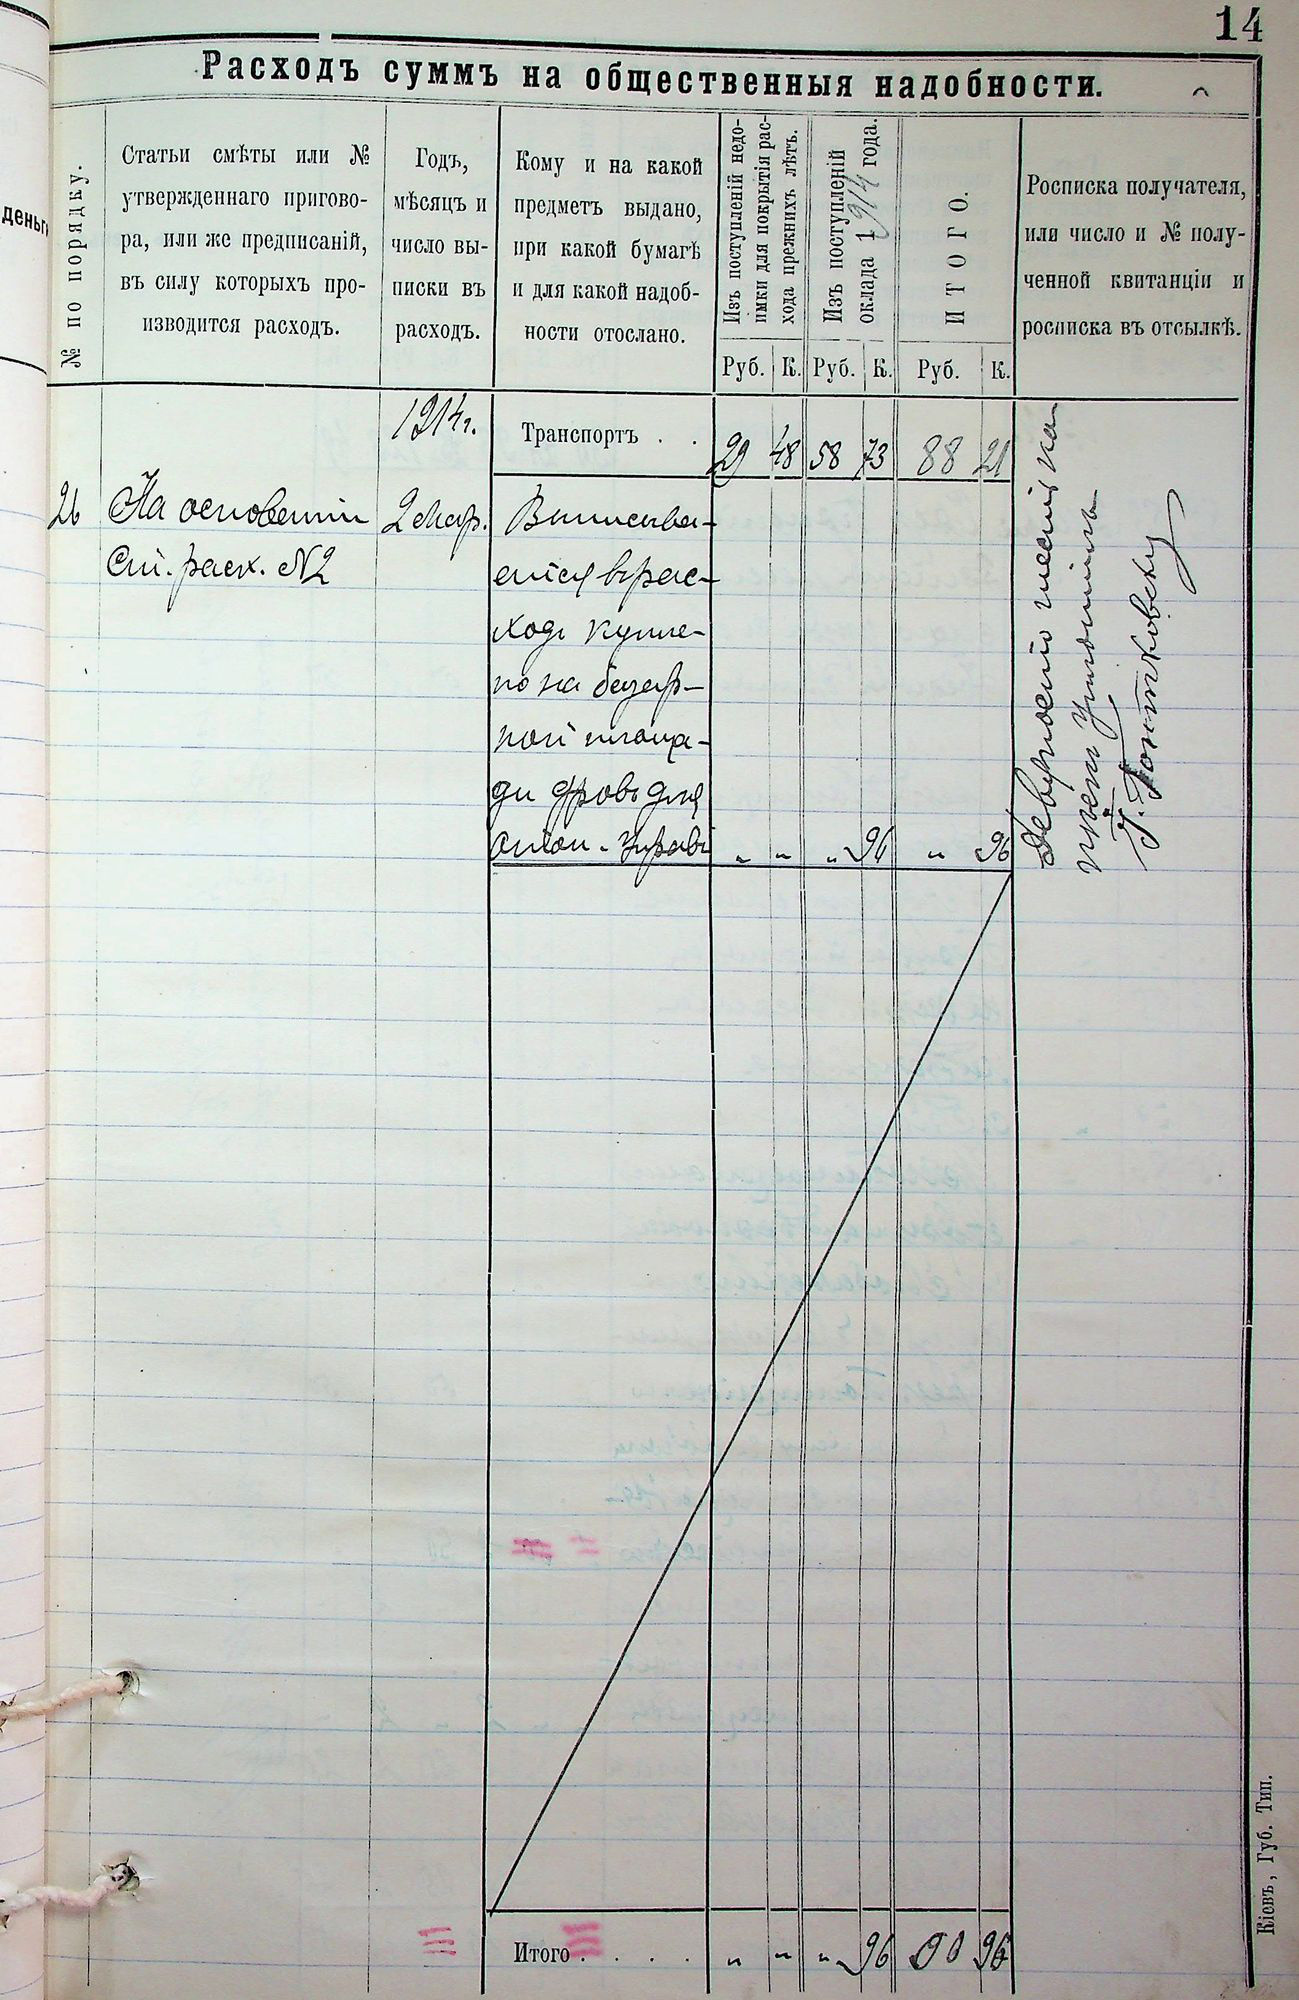 14
Расходъ суммъ на общественныя надобности.
деньг
№ по порядку.
Статьи смѣты или №
утвержденнаго пригово-
ра, или же предписаній,
въ силу которыхъ про-
изводится расходъ.
Годъ,
мѣсяцъ и
число вы-
писки въ
расходъ.
Кому и на какой
предметъ выдано,
при какой бумагѣ
и для какой надоб-
ности отослано.
Изъ поступленій недо-
имки для покрытія рас-
хода прежнихъ лѣтъ.
Изъ поступленій
оклада 1914 года.
ИТОГО.
Росписка получателя,
или число и № полу-
ченной квитанціи и
росписка въ отсылкѣ.
Руб. К. Руб. К. Руб. К.
1914 г. Транспортъ . . 29 48 58 73 88 21
26 На основаніи 2 Мар. Выписыва-
Ст. расх. №2 ется въ рас-
ходъ купле-
но на базар-
ной площа-
ди дровъ для
„ „ „ 96 „ 96
Итого . . . . „ „ „ 96 96
Кіевъ, Губ. Тип.